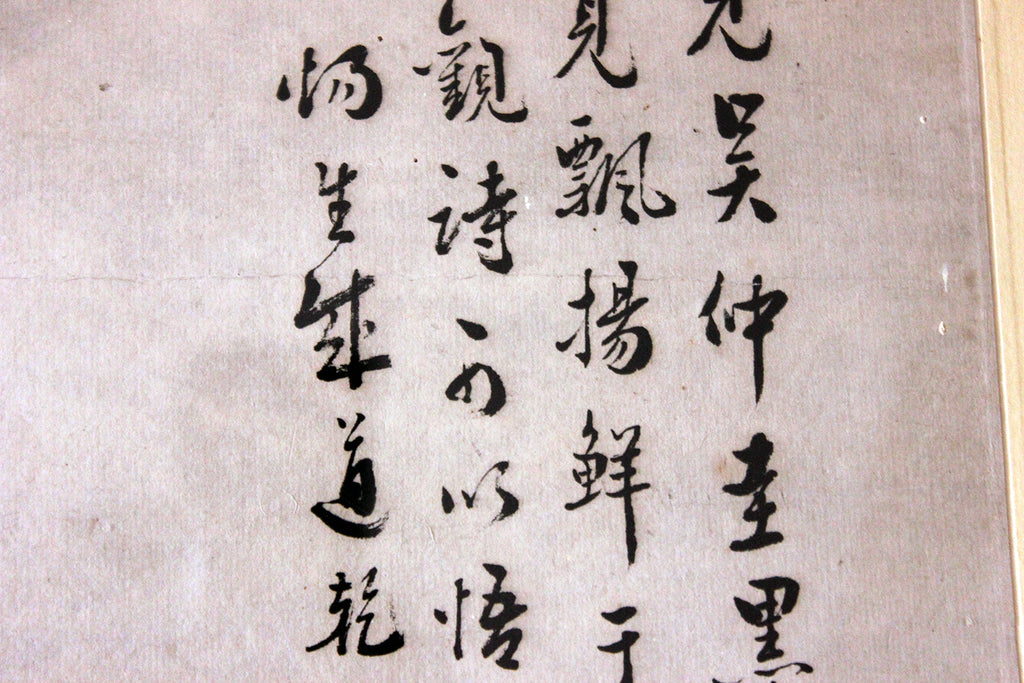 見吳仲圭墨
見飄揚鮮于
觀詩可以悟
惕生成道乾